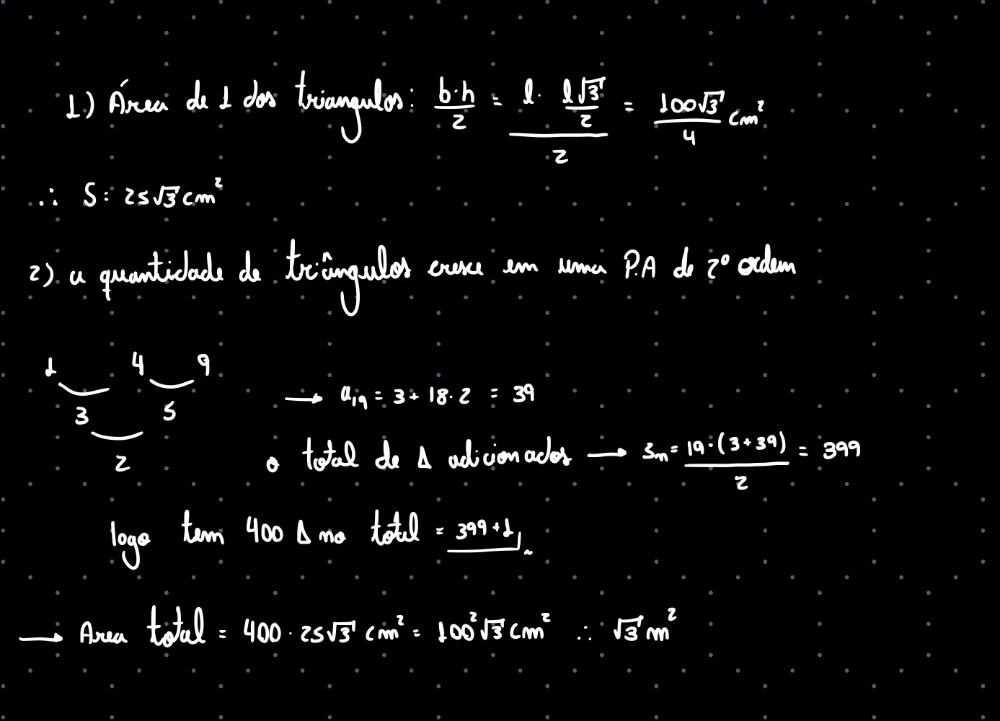 1.) Área de 1 dos triangulos: b·h/2 = (l · l√3/2)/2 = 100√3/4 cm²
∴ S: 25√3 cm²
2) a quantidade de triângulos cresce em uma P.A de 2º ordem
1 4 9
3 5
2
→ a₁₉ = 3 + 18·2 = 39
o total de Δ adicionados → Sₙ = 19·(3+39)/2 = 399
logo tem 400 Δ no total = 399+1
→ Area total = 400 · 25√3 cm² = 100²√3 cm² ∴ √3 m²